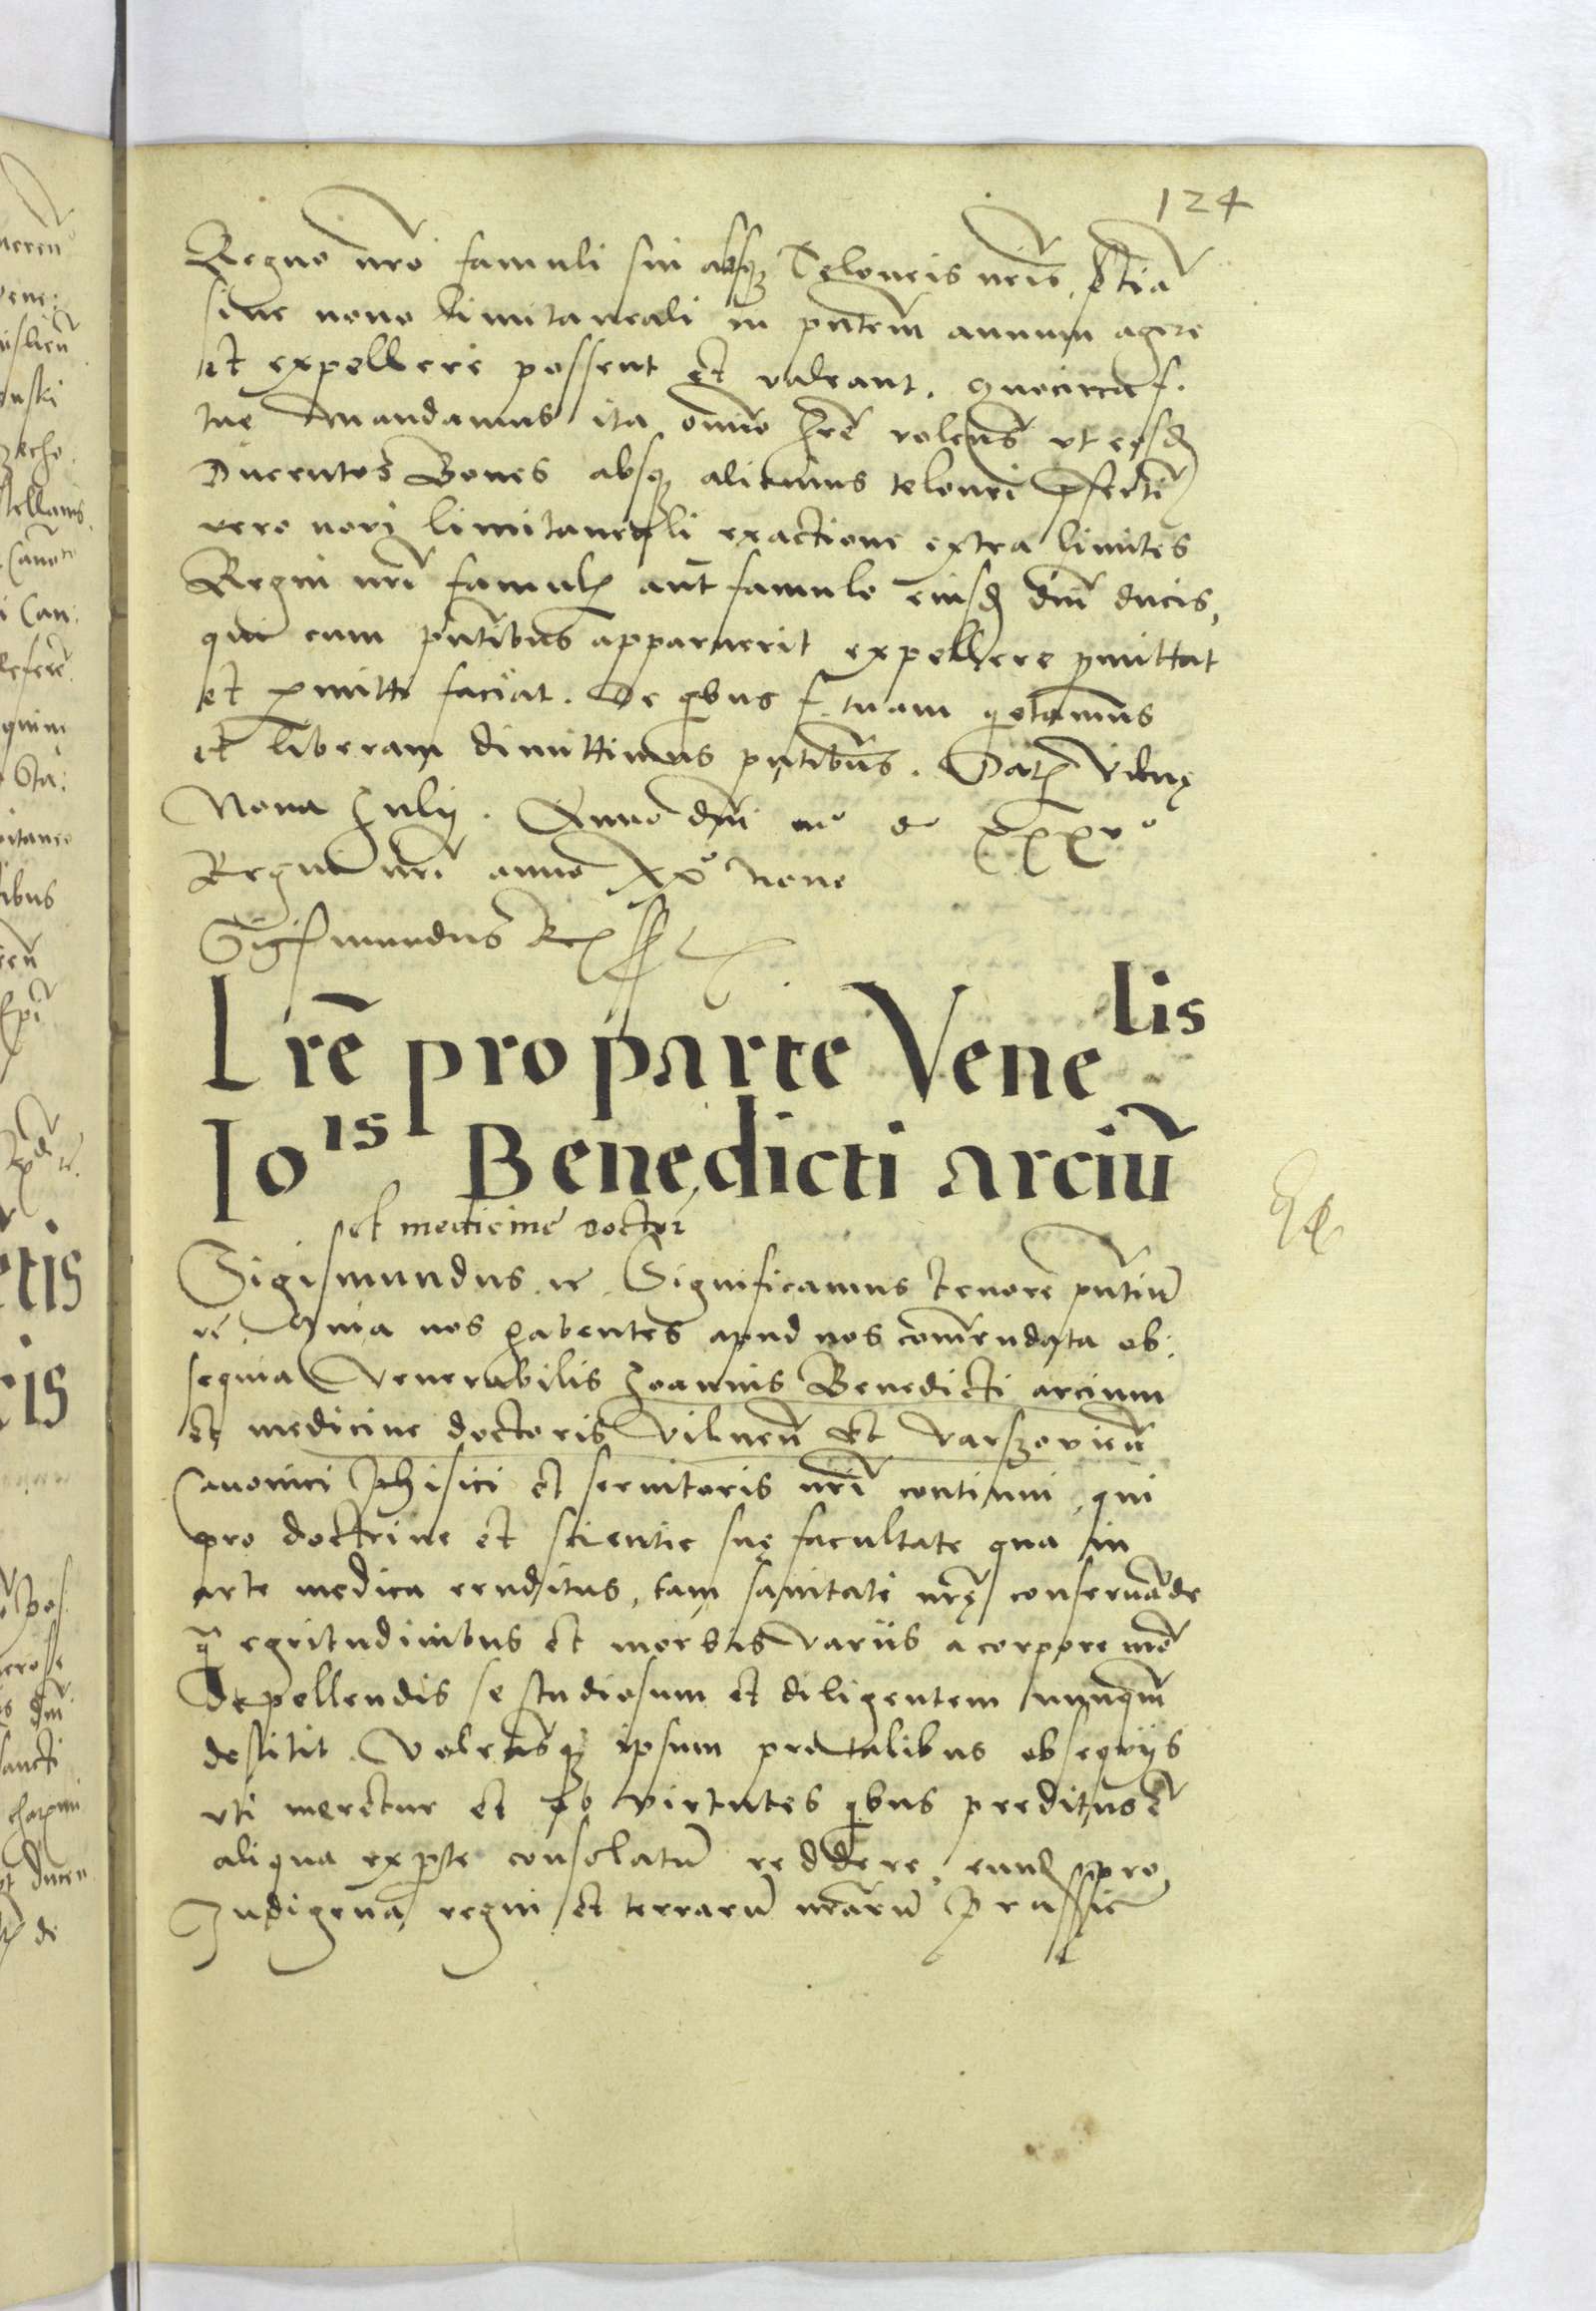 124
Regno nr̃o famuli sui absq̃ Teloneis nr̃is, etiã
sine nono limitaneali in pñtem annum agere
et expellere possent et valeant. Quocirca f.
tue mandamus ita om̃io hr̃e volens̃ ut eosđ
Ducentos Boves absq̃ alicuius telonei
vero novi limitaneali exactione extra limites
Regni nr̃i famul aut famulo eiusđ dñi ducis,
qui cum pñtibus apparuerit expellere pmittat
et pmitti faciat. De qbus f. tuam qetamus
et liberam dimittimus pñtibus. Dat Vilnę
Nona July. Anno dñi mº dº xxxvº
Regni nr̃i anno xxº nono
Sigismundus Rex
Lrẽ pro parte Vene lis
Io is Benedicti arciũ
et medicine doctor
Sigismundus rc. Significamus tenore pñtiũ
rc. Quia nos habentes apud nos com̃endata ob:
sequia Venerabilis Joannis Benedicti arcium
et medicine doctoris Vilneñ et Varszovieñ
Canonici phisici et servitoris nr̃i continui, qui
pro doctrine et scientie suę facultate qua in
arte medica eruditus, tam sanitati nr̃ę conservãde
q̃ egritudinibus et morbis variis a corpore nr̃o
depellendis se studiosum et diligentem nunqm̃
destitit. Volentesq̃ ipsum pro talibus obsequijs
uti meretur et ob virtutes qbus preditus ẽ
aliqua ex pte consolatũ reddere, eunđ pro
Indigena regni et terrarũ nr̃arũ Prussie